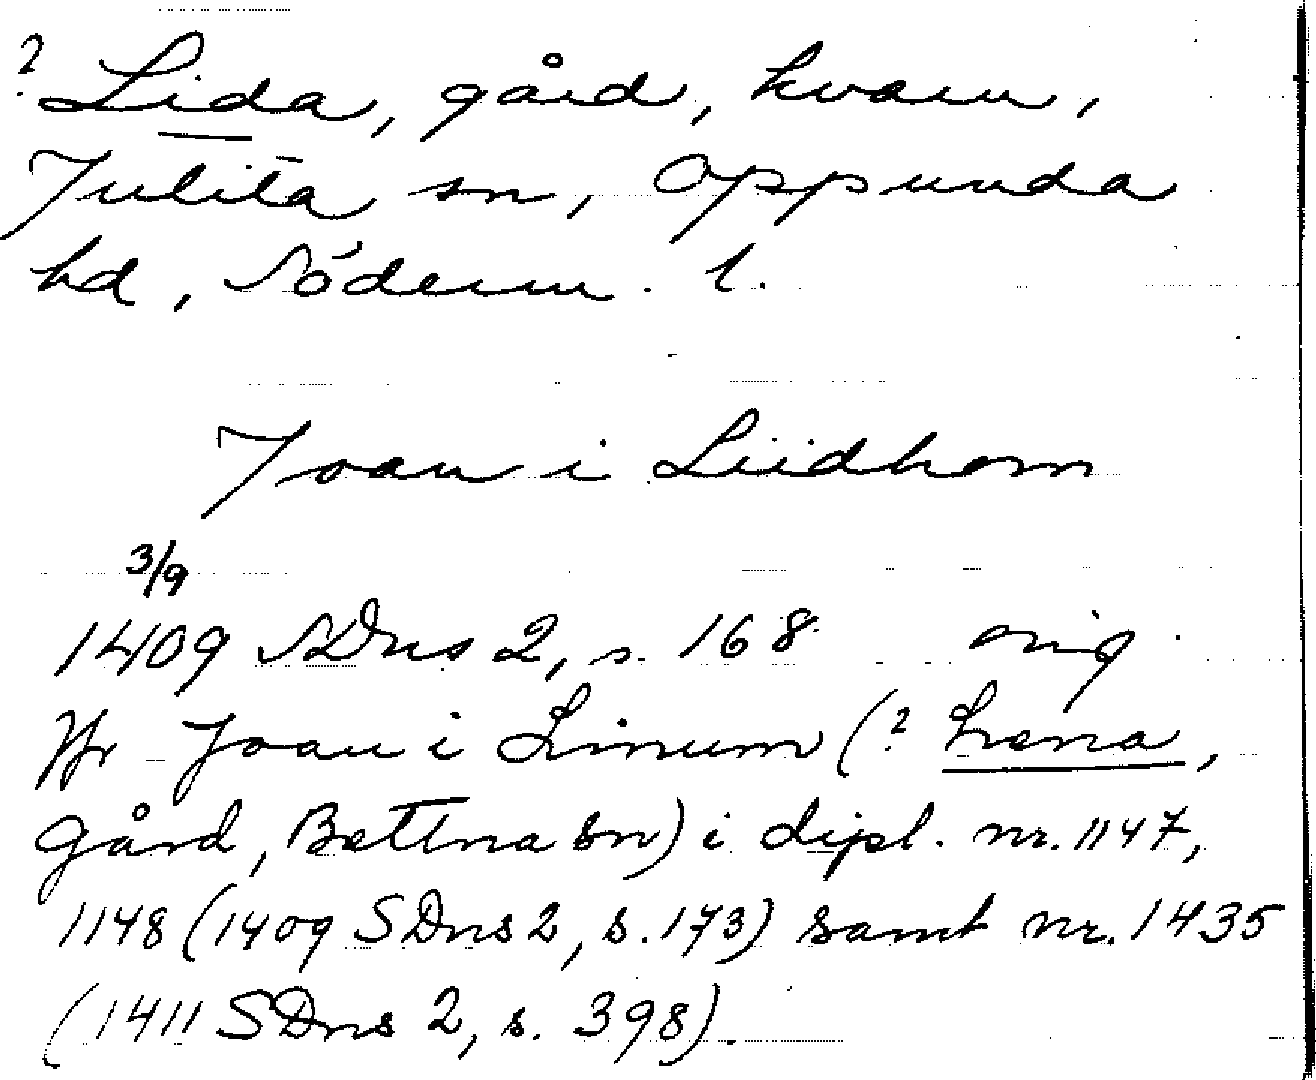 ? Lida, gård, kvarn,
Julita sn, Oppunda
hd, Söderm. l.
Joan i Liidhom
3/9
1409 SDns 2, s. 168 orig.
Jfr Joan i Linum (? Lrena,
gård, Bettna sn) i dipl. nr. 1147,
1148 (1409 SDns 2, s. 173) samt nr. 1435
(1411 SDns 2, s. 398).